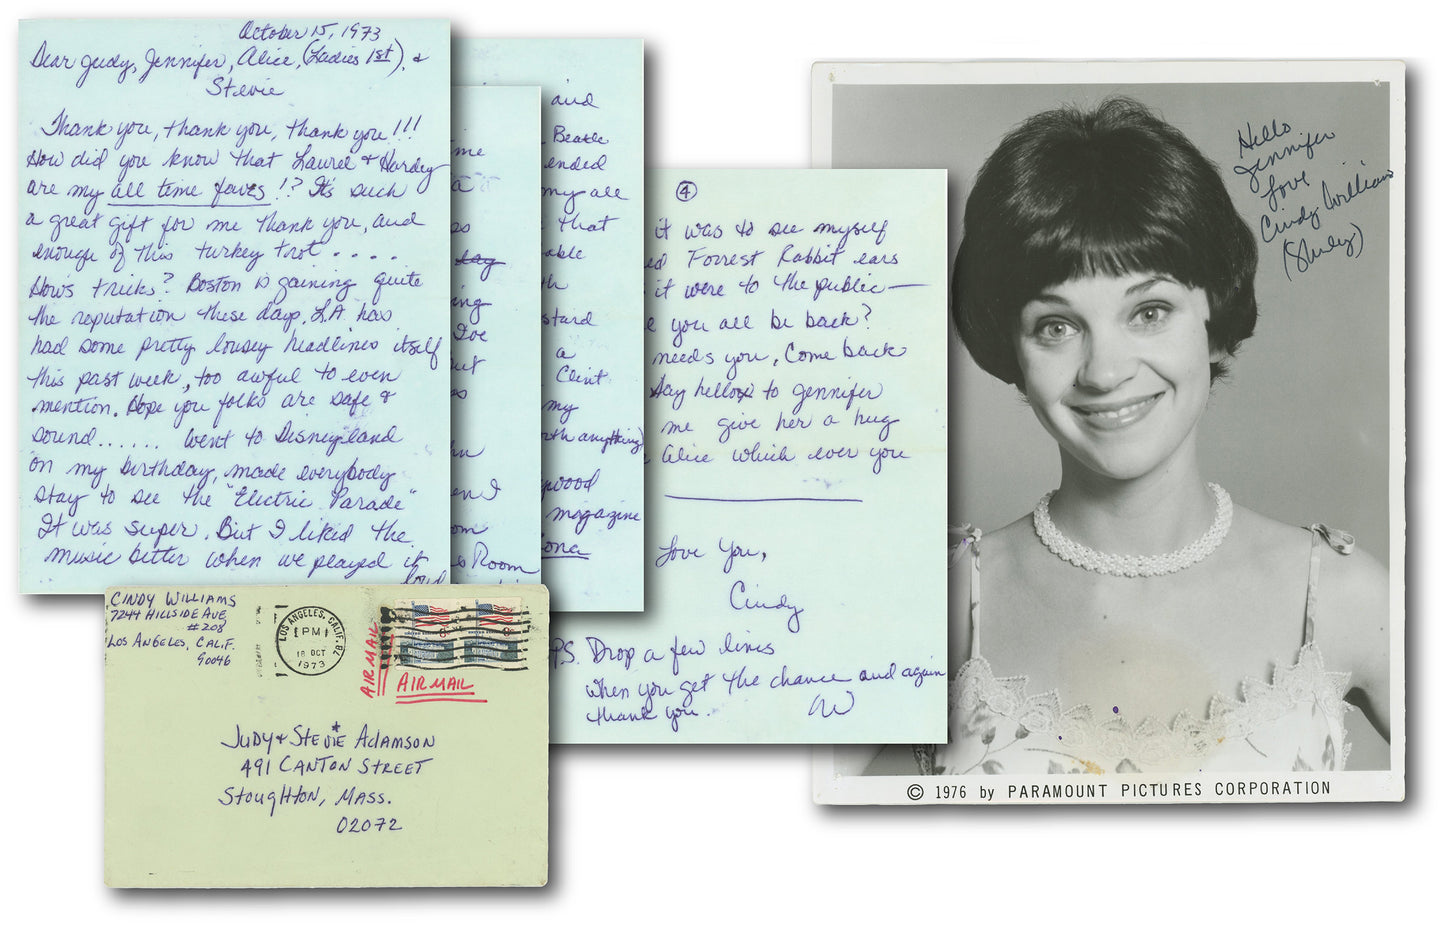 October 15, 1973
Dear Judy, Jennifer, Alice, (Ladies 1st), &
Stevie
Thank you, thank you, thank you!!!
How did you know that Laurel & Hardey
are my all time faves!? It's such
a great gift for me thank you, and
enough of this turkey trot....
Hows tricks? Boston is gaining quite
the reputation these days. L.A has
had some pretty lousey headlines itself
this past week, too awful to even
mention. Hope you folks are safe &
sound...... Went to Disneyland
on my birthday, made everybody
stay to see the "Electric Parade"
It was super. But I liked the
music better when we played it
loud
me
ing
Joe
out
en I
oom
s Room
and
Beatle
ended
my all
that
able
th
stard
a
Clint
my
rth anything)
ywood
magazine
ona
4
it was to see myself
ed Forrest Rabbit ears
it were to the public—
e you all be back?
needs you, Come back
Say hello to Jennifer
me give her a hug
Alice which ever you
Love You,
Cindy
P.S. Drop a few lines
when you get the chance and again
thank you.
CW
CINDY WILLIAMS
7244 HILLSIDE AVE
#208
LOS ANGELES, CALIF.
90046
LOS ANGELES, CALIF.
PM
18 OCT
1973
AIR MAIL
AIR MAIL
JUDY & STEVIE ADAMSON
491 CANTON STREET
STOUGHTON, MASS.
02072
Hello
Jennifer
Love
Cindy Williams
(Shirley)
© 1976 by PARAMOUNT PICTURES CORPORATION